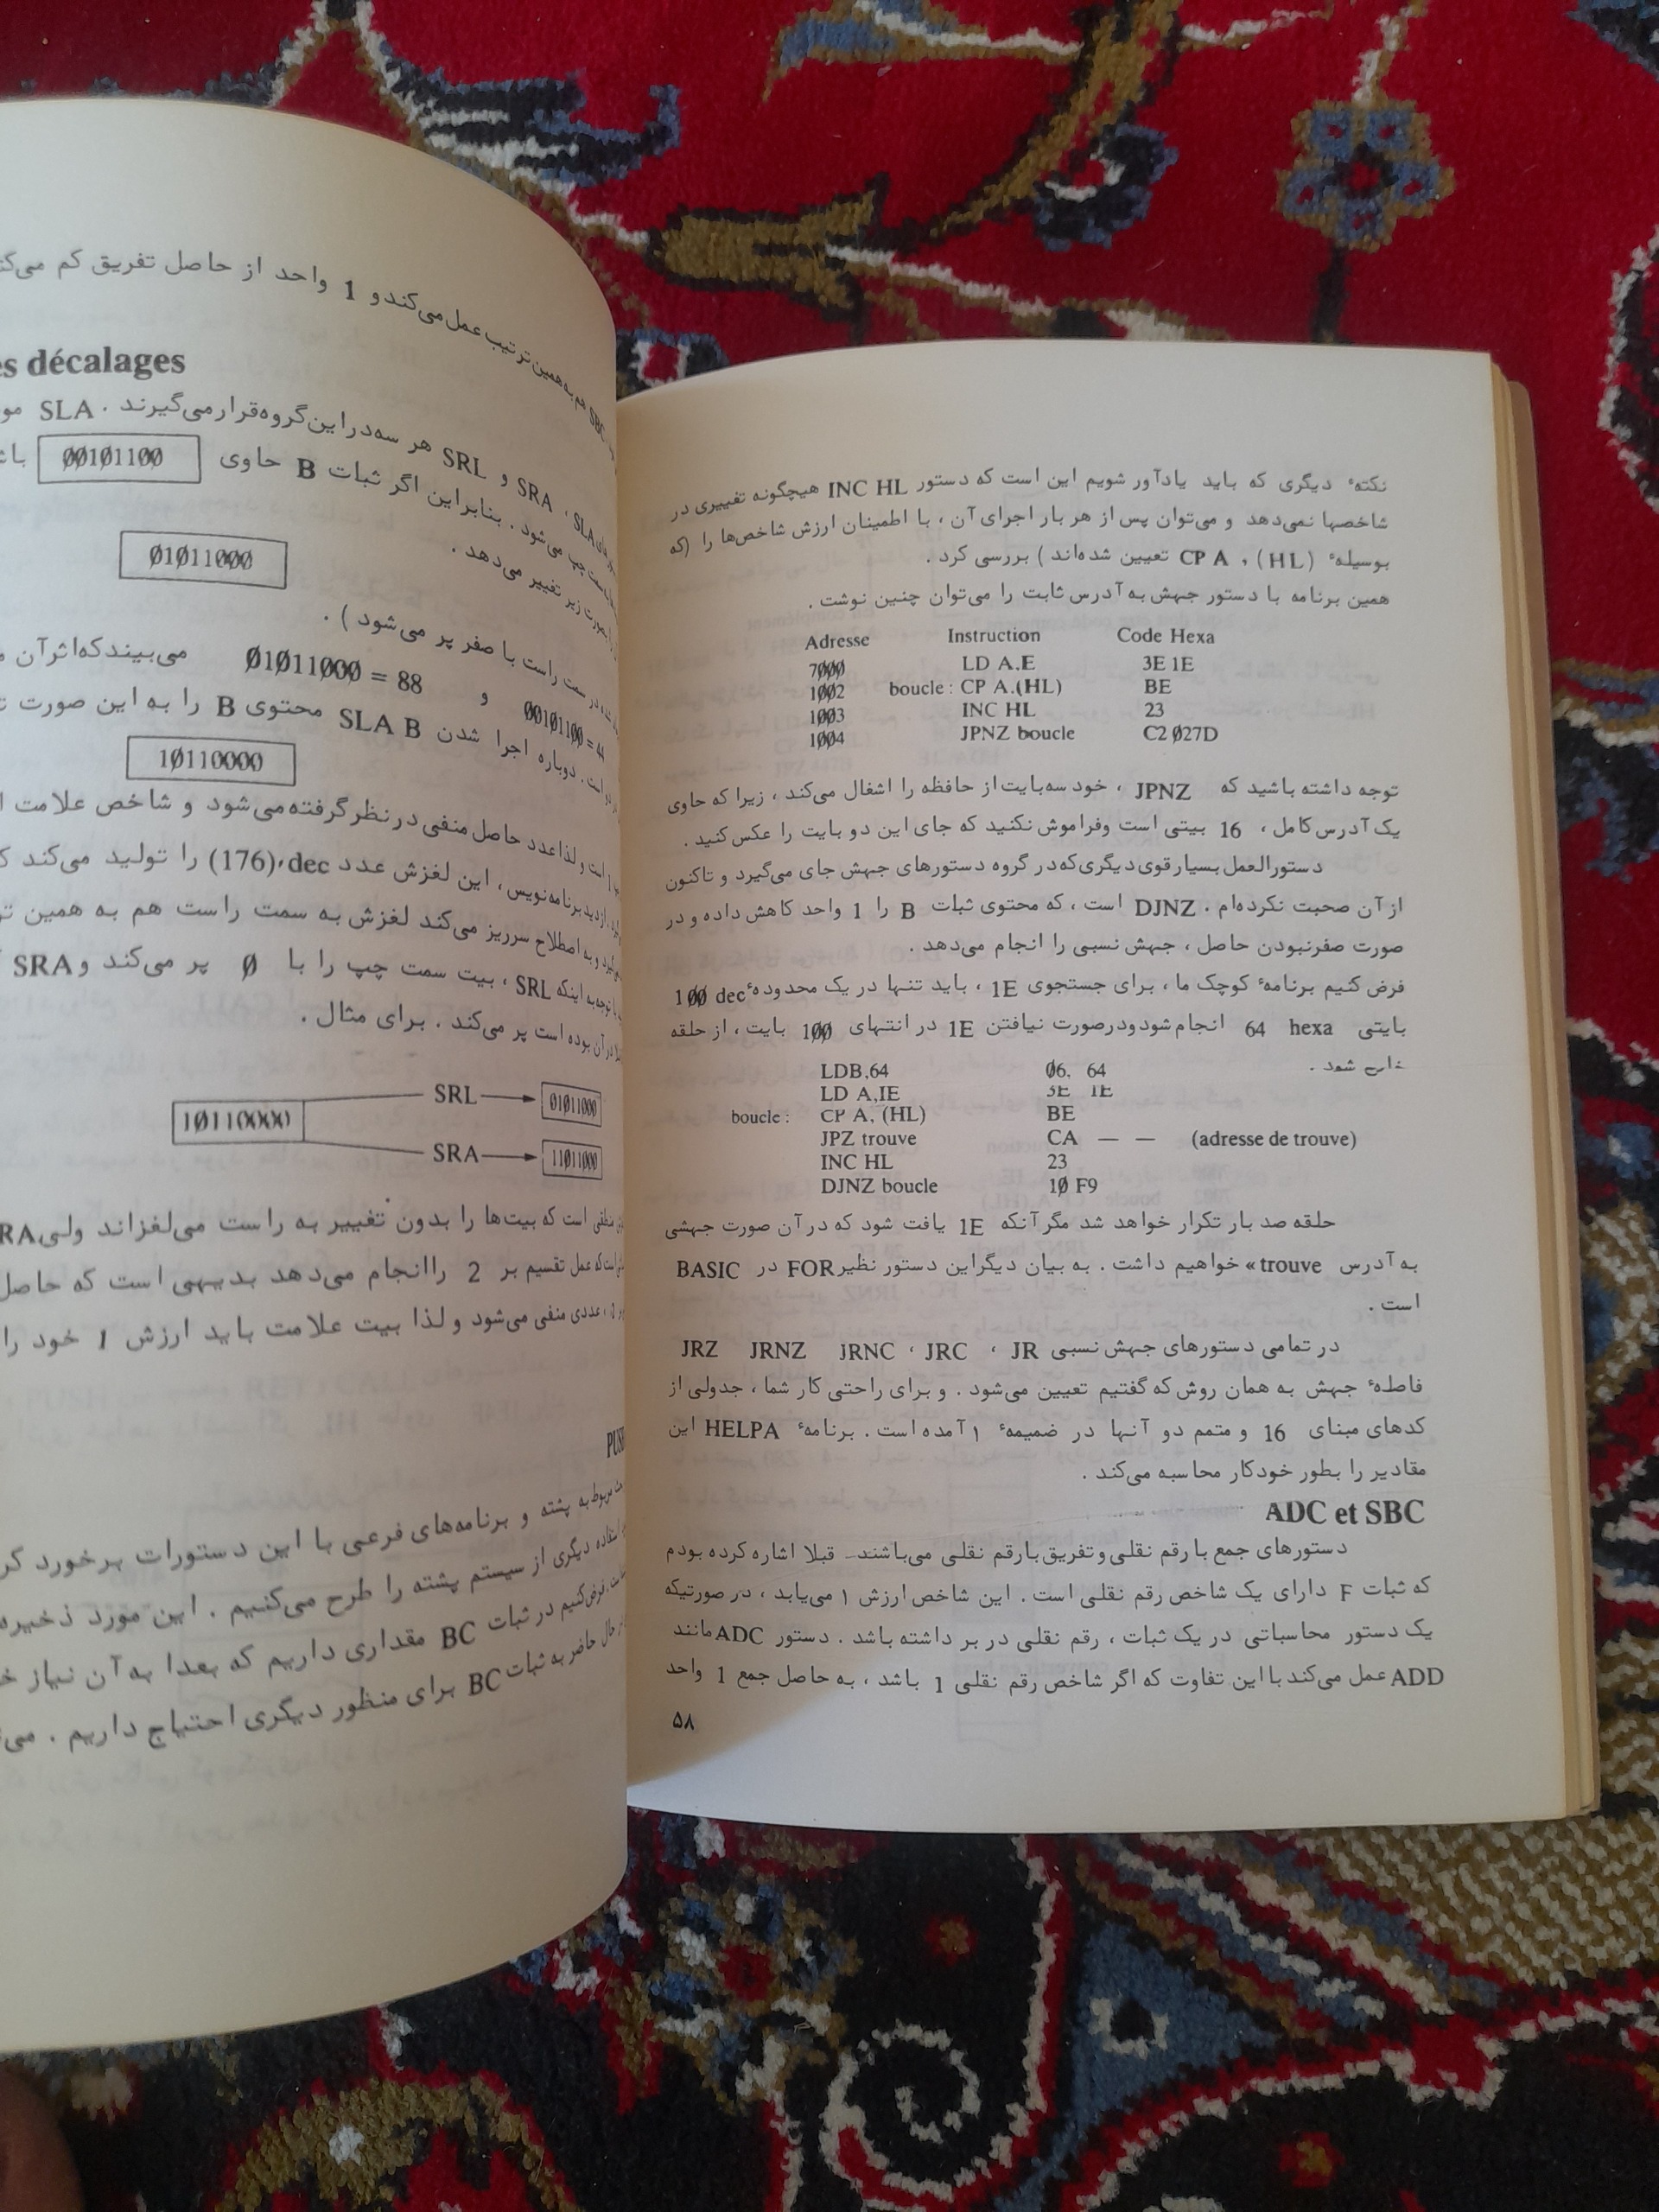 نکتهٔ دیگری که باید یادآور شویم این است که دستور INC HL هیچگونه تغییری در
شاخصها نمی‌دهد و می‌توان پس از هر بار اجرای آن ، با اطمینان ارزش شاخص‌ها را (که
بوسیلهٔ CP A , (HL) تعیین شده‌اند ) بررسی کرد .
همین برنامه با دستور جهش به آدرس ثابت را می‌توان چنین نوشت .
Adresse Instruction Code Hexa
7000 LD A.E 3E 1E
1002 boucle : CP A.(HL) BE
1003 INC HL 23
1004 JPNZ boucle C2 Ø27D
توجه داشته باشید که JPNZ ، خود سه‌بایت از حافظه را اشغال می‌کند ، زیرا که حاوی
یک آدرس کامل ، 16 بیتی است وفراموش نکنید که جای این دو بایت را عکس کنید .
دستورالعمل بسیار قوی دیگری که در گروه دستورهای جهش جای می‌گیرد و تاکنون
از آن صحبت نکرده‌ام . DJNZ است ، که محتوی ثبات B را 1 واحد کاهش داده و در
صورت صفرنبودن حاصل ، جهش نسبی را انجام می‌دهد .
فرض کنیم برنامهٔ کوچک ما ، برای جستجوی 1E ، باید تنها در یک محدودهٔ 1ØØ dec
بایتی 64 hexa انجام شود ودرصورت نیافتن 1E در انتهای 1ØØ بایت ، از حلقه
خارج شود .
LDB,64 Ø6, 64
LD A,IE 3E 1E
boucle : CP A, (HL) BE
JPZ trouve CA — — (adresse de trouve)
INC HL 23
DJNZ boucle 1Ø F9
حلقه صد بار تکرار خواهد شد مگر آنکه 1E یافت شود که در آن صورت جهشی
به آدرس trouve» خواهیم داشت . به بیان دیگراین دستور نظیر FOR در BASIC
است .
در تمامی دستورهای جهش نسبی JR ، JRC ، JRNC JRNZ JRZ
فاصلهٔ جهش به همان روش که گفتیم تعیین می‌شود . و برای راحتی کار شما ، جدولی از
کدهای مبنای 16 و متمم دو آنها در ضمیمهٔ ۱ آمده است . برنامهٔ HELPA این
مقادیر را بطور خودکار محاسبه می‌کند .
ADC et SBC
دستورهای جمع با رقم نقلی و تفریق با رقم نقلی می‌باشند_ قبلا اشاره کرده بودم
که ثبات F دارای یک شاخص رقم نقلی است . این شاخص ارزش ۱ می‌یابد ، در صورتیکه
یک دستور محاسباتی در یک ثبات ، رقم نقلی در بر داشته باشد . دستور ADC مانند
ADD عمل می‌کند با این تفاوت که اگر شاخص رقم نقلی 1 باشد ، به حاصل جمع 1 واحد
۵۸
SBC هم به همین ترتیب عمل می‌کند و 1 واحد از حاصل تفریق کم
décalages
SLA ، SRA و SRL هر سه در این گروه قرار می‌گیرند . SLA
چپ می‌شود . بنابراین اگر ثبات B حاوی ØØ1Ø11ØØ
بصورت زیر تغییر می‌دهد .
Ø1Ø11ØØØ
در سمت راست با صفر پر می‌شود ) .
ØØ1Ø11ØØ = 44 و Ø1Ø11ØØØ = 88 می‌بیندکه اثر آن
است . دوباره اجرا شدن SLA B محتوی B را به این صورت
1Ø11ØØØØ
است و لذا عدد حاصل منفی در نظر گرفته می‌شود و شاخص علامت
ازدید برنامه‌نویس ، این لغزش عدد dec،(176) را تولید می‌کند
و به اصطلاح سرریز می‌کند لغزش به سمت راست هم به همین
با توجه به اینکه SRL ، بیت سمت چپ را با Ø پر می‌کند و SRA
در آن بوده است پر می‌کند . برای مثال .
1Ø11ØØØØ SRL Ø1Ø11ØØØ
SRA 11Ø11ØØØ
منطقی است که بیت‌ها را بدون تغییر به راست می‌لغزاند ولی
است که عمل تقسیم بر 2 راانجام می‌دهد بدیهی است که حاصل
عددی منفی می‌شود و لذا بیت علامت باید ارزش 1 خود را
مربوط به پشته و برنامه‌های فرعی با این دستورات برخورد
استفاده دیگری از سیستم پشته را طرح می‌کنیم . این مورد
فرض کنیم در ثبات BC مقداری داریم که بعدا به آن نیاز
حال حاضر به ثبات BC برای منظور دیگری احتیاج داریم .